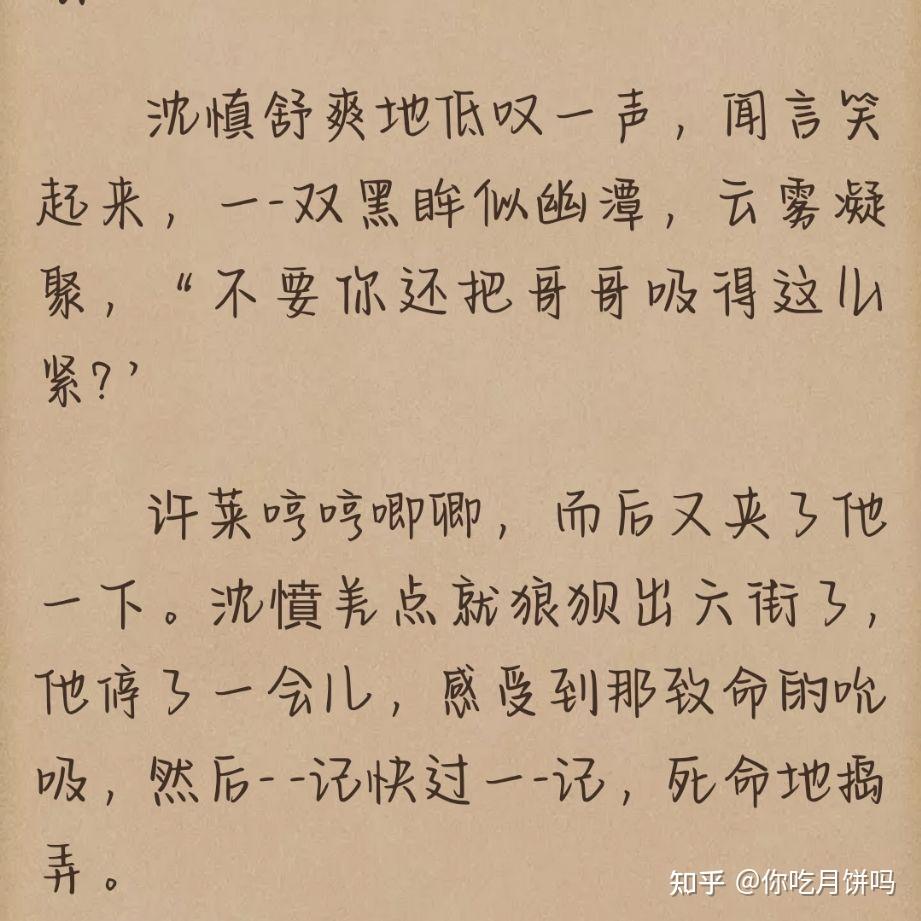 沈慎舒爽地低叹一声，闻言笑
起来，一-双黑眸似幽潭，云雾凝
聚，“不要你还把哥哥吸得这么
紧？’
许莱哼哼唧卿，而后又夹了他
一下。沈憤羌点就狼狈出六街了，
他停了一会儿，感受到那致命的吮
吸，然后--记快过一-记，死命地捣
弄。
知乎 @你吃月饼吗